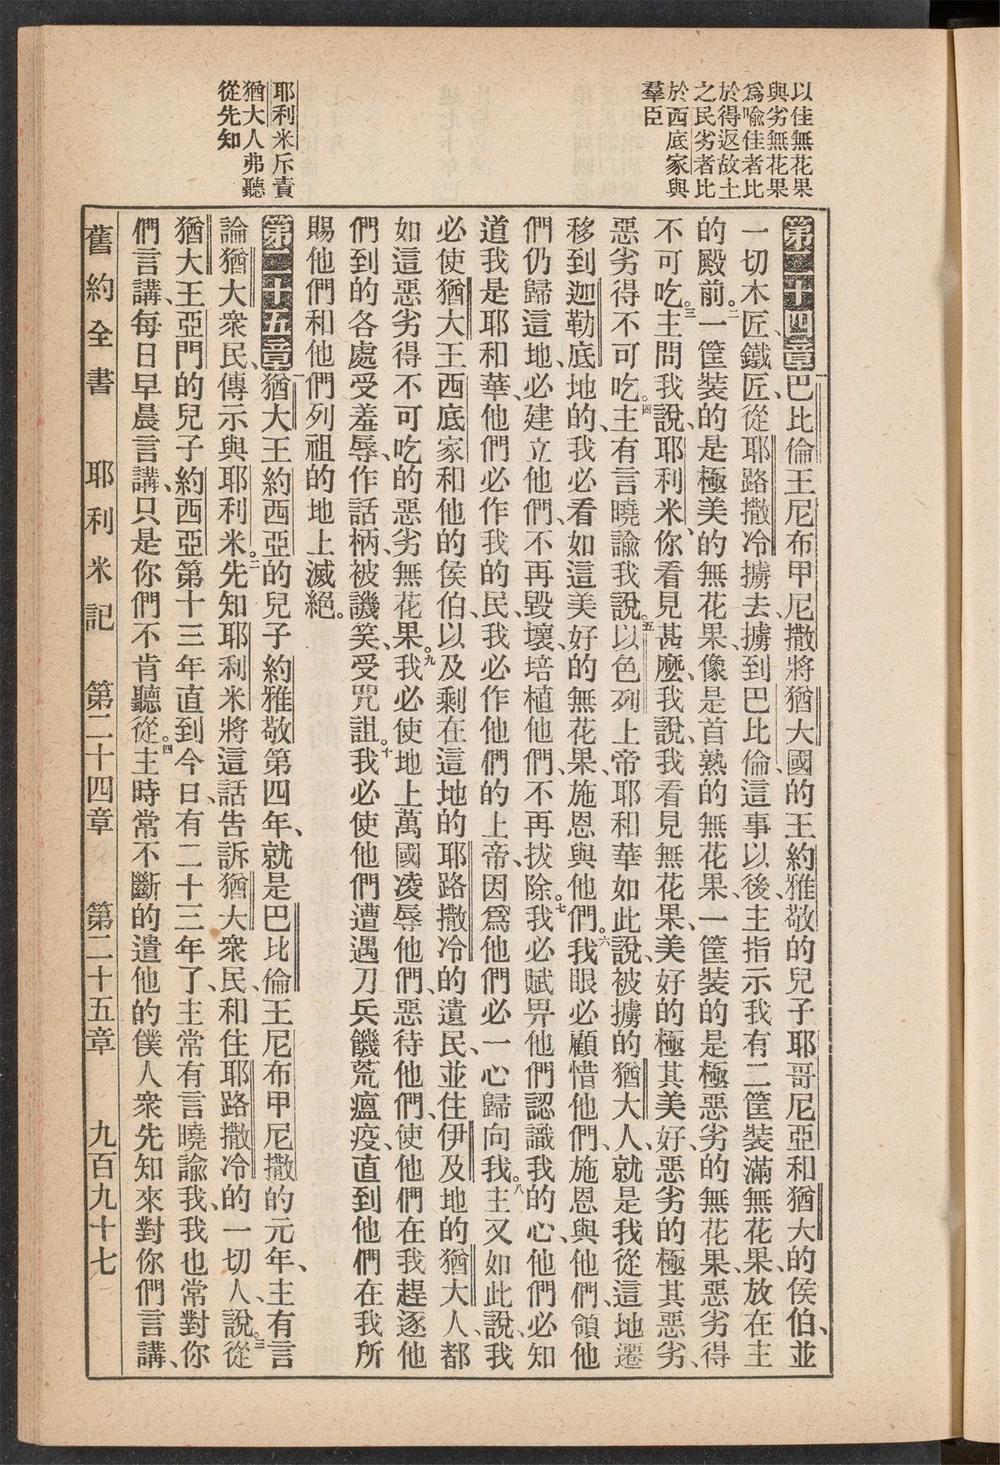 以佳無花果
與劣無花果
爲喻佳者比
於得返故土
之民劣者比
於西底家與
羣臣
耶利米斥責
猶大人弗聽
從先知
第二十四章一巴比倫王尼布甲尼撒將猶大國的王約雅敬的兒子耶哥尼亞和猶大的侯伯、並
一切木匠、鐵匠、從耶路撒冷擄去、擄到巴比倫、這事以後、主指示我有二筐裝滿無花果、放在主
的殿前。二一筐裝的是極美的無花果、像是首熟的無花果、一筐裝的是極惡劣的無花果、惡劣得
不可吃。三主問我說、耶利米、你看見甚麼、我說、我看見無花果、美好的極其美好、惡劣的極其惡劣、
惡劣得不可吃。四主有言曉諭我說。五以色列上帝耶和華如此說、被擄的猶大人、就是我從這地遷
移到迦勒底地的、我必看如這美好的無花果、施恩與他們。六我眼必顧惜他們、施恩與他們、領他
們仍歸這地、必建立他們、不再毀壞、培植他們、不再拔除。七我必賦畀他們認識我的心、他們必知
道我是耶和華、他們必作我的民、我必作他們的上帝、因爲他們必一心歸向我。八主又如此說、我
必使猶大王西底家和他的侯伯、以及剩在這地的耶路撒冷的遺民、並住伊及地的猶大人、都
如這惡劣得不可吃的惡劣無花果。九我必使地上萬國凌辱他們、惡待他們、使他們在我趕逐他
們到的各處受羞辱、作話柄、被譏笑、受咒詛。十我必使他們遭遇刀兵饑荒瘟疫、直到他們在我所
賜他們和他們列祖的地上滅絕。
第二十五章一猶大王約西亞的兒子約雅敬第四年、就是巴比倫王尼布甲尼撒的元年、主有言
論猶大衆民、傳示與耶利米。二先知耶利米將這話告訴猶大衆民、和住耶路撒冷的一切人、說。三從
猶大王亞門的兒子約西亞第十三年直到今日、有二十三年了、主常有言曉諭我、我也常對你
們言講、每日早晨言講、只是你們不肯聽從。四主時常不斷的遣他的僕人衆先知來對你們言講、
舊約全書 耶利米記 第二十四章 第二十五章 九百九十七